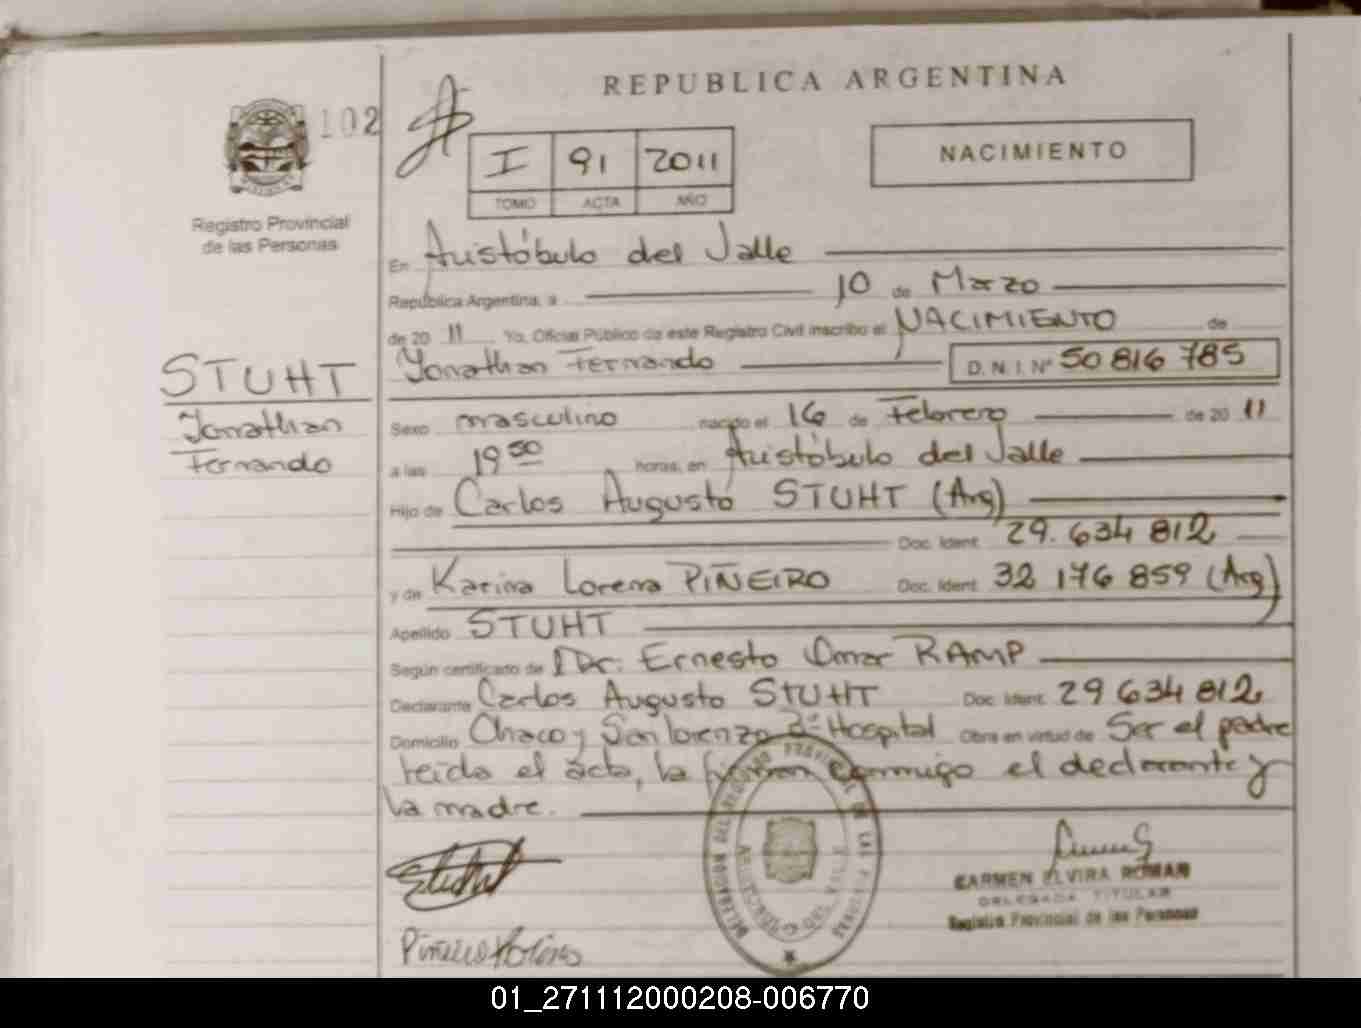 REPUBLICA ARGENTINA
102
I 91 2011
TOMO ACTA AÑO
NACIMIENTO
Registro Provincial
de las Personas
En Aristóbulo del Valle
República Argentina, a 10 de Marzo
de 20 11 Yo, Oficial Público de este Registro Civil inscribo el NACIMIENTO de
Jonathan Fernando D.N.I. Nº 50 816 785
STUHT
Jonathan
Fernando
Sexo masculino nacido el 16 de Febrero de 20 11
a las 19 50 horas, en Aristóbulo del Valle
Hijo de Carlos Augusto STUHT (Arg)
Doc. Ident. 29.634 812
y de Karina Lorena PIÑEIRO Doc. Ident. 32 176 859 (Arg)
Apellido STUHT
Según certificado de Dr. Ernesto Omar RAMP
Declarante Carlos Augusto STUHT Doc. Ident. 29 634 812
Domicilio Chaco y San Lorenzo Bº Hospital Obra en virtud de Ser el padre
leída el acta, la firman conmigo el declarante y
la madre.
CARMEN ELVIRA ROMAN
DELEGADA TITULAR
Registro Provincial de las Personas
01_271112000208-006770